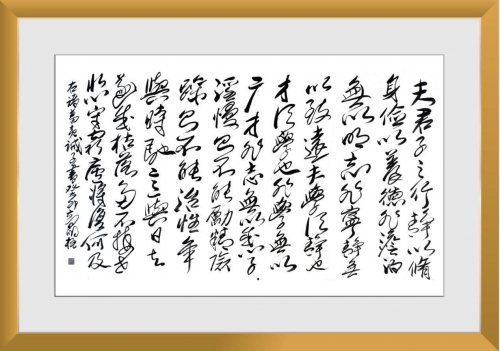 夫君子之行静以脩
身俭以養德非澹泊
無以明志非寧静無
以致遠夫學須静也
才須學也非學無以
广才非志無以成學
淫慢则不能勵精險
躁则不能治性年
與時馳意與日去
遂成枯落多不接世
悲守窮廬將復何及
右诸葛亮诫子書